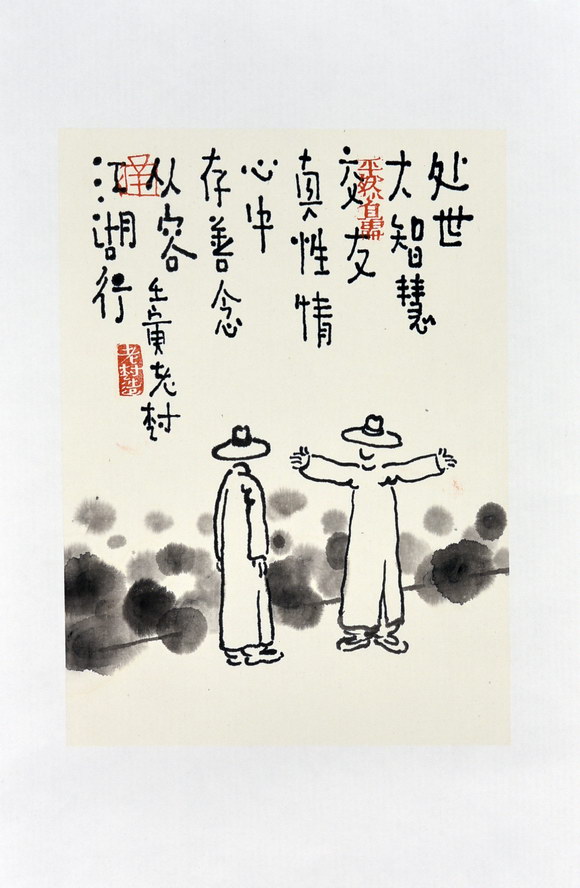 处世
大智慧
交友
真性情
心中
存善念
从容
江湖行
壬寅老村